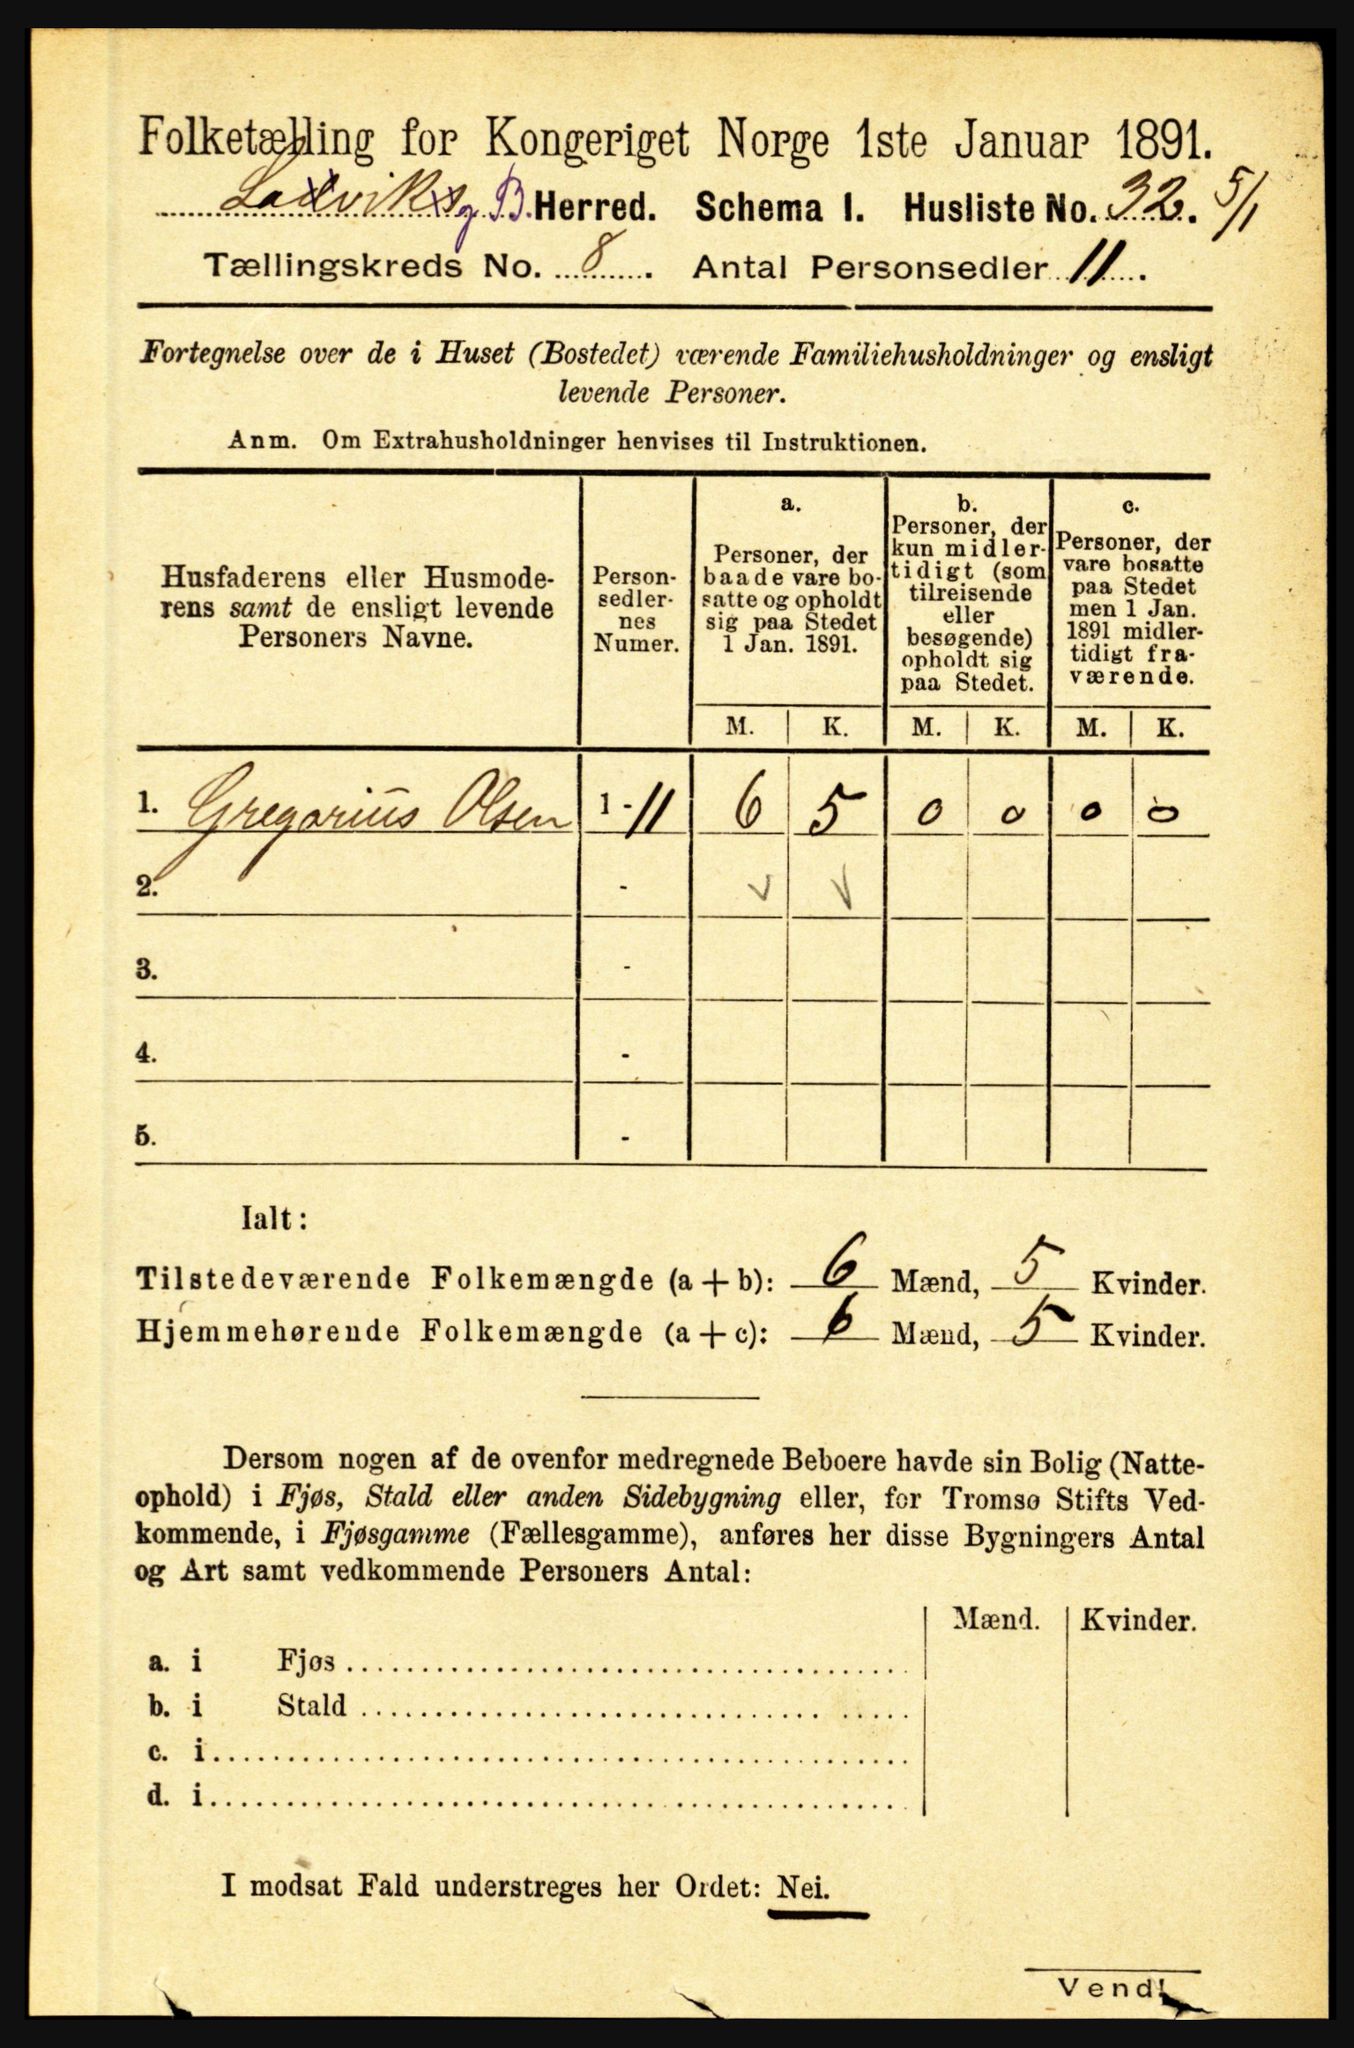 Folketælling for Kongeriget Norge 1ste Januar 1891.
Ladviks og B. Herred. Schema I. Husliste No. 32. 5/1
Tællingskreds No. 8. Antal Personsedler 11.
Fortegnelse over de i Huset (Bostedet) værende Familiehusholdninger og ensligt
levende Personer.
Anm. Om Extrahusholdninger henvises til Instruktionen.
Husfaderens eller Husmode-
rens samt de ensligt levende
Personers Navne.
Person-
sedler-
nes
Numer.
a.
Personer, der
baade vare bo-
satte og opholdt
sig paa Stedet
1 Jan. 1891.
b.
Personer, der
kun midler-
tidigt (som
tilreisende
eller
besøgende)
opholdt sig
paa Stedet.
c.
Personer, der
vare bosatte
paa Stedet
men 1 Jan.
1891 midler-
tidigt fra-
værende.
M. K. M. K. M. K.
1. Gregorius Olsen 1 - 11 6 5 0 0 0 0
2. -
3. -
4. -
5. -
Ialt:
Tilstedeværende Folkemængde (a + b): 6 Mænd, 5 Kvinder.
Hjemmehørende Folkemængde (a + c): 6 Mænd, 5 Kvinder.
Dersom nogen af de ovenfor medregnede Beboere havde sin Bolig (Natte-
ophold) i Fjøs, Stald eller anden Sidebygning eller, for Tromsø Stifts Ved-
kommende, i Fjøsgamme (Fællesgamme), anføres her disse Bygningers Antal
og Art samt vedkommende Personers Antal:
Mænd. Kvinder.
a. i Fjøs
b. i Stald
c. i
d. i
I modsat Fald understreges her Ordet: Nei.
Vend!